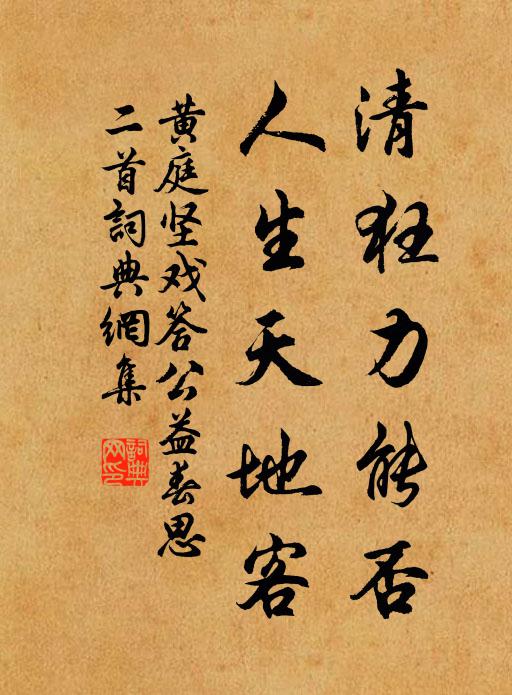 清狂力能否
人生天地客
黄庭坚戏答公益春思
二首詞典網集
詞典
网印